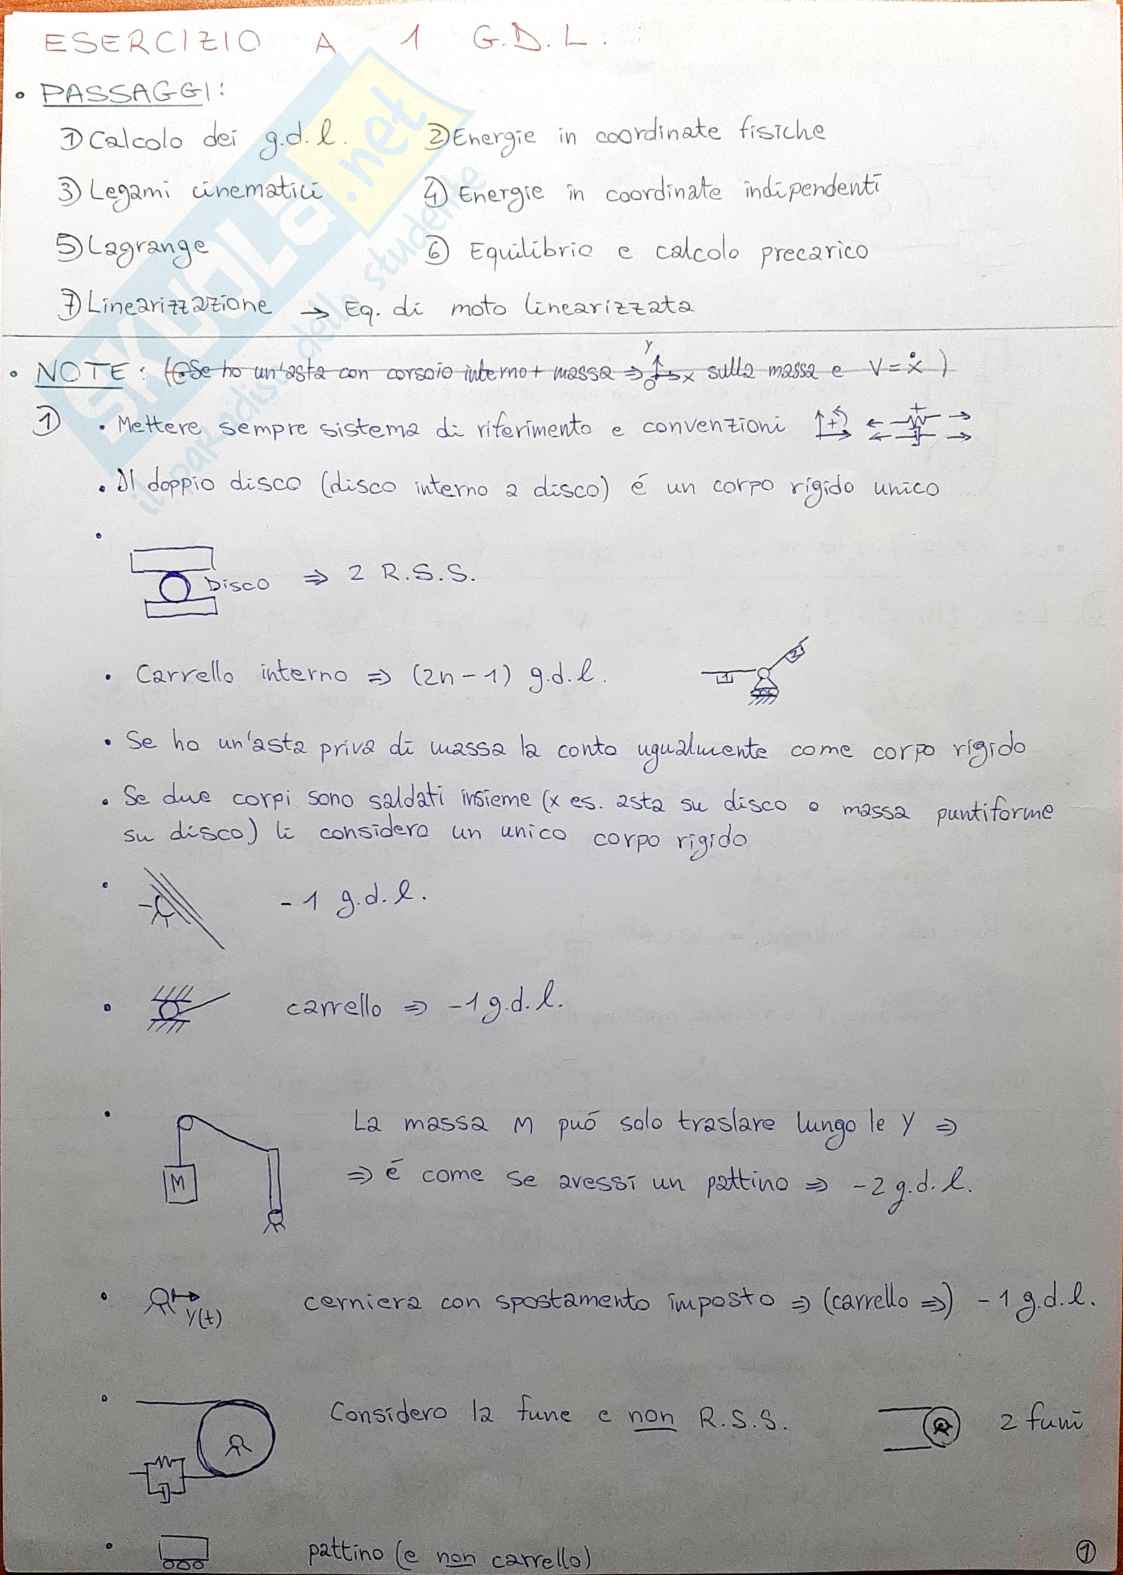 ESERCIZIO A 1 G.D.L.
• PASSAGGI:
① Calcolo dei g.d.l. ② Energie in coordinate fisiche
③ Legami cinematici ④ Energie in coordinate indipendenti
⑤ Lagrange ⑥ Equilibrio e calcolo precarico
⑦ Linearizzazione → Eq. di moto linearizzata
• NOTE: (• Se ho un'asta con corsoio interno + massa ⇒ y O x sulla massa e V = ẋ )
① • Mettere sempre sistema di riferimento e convenzioni + +
• Il doppio disco (disco interno a disco) é un corpo rigido unico
• Disco ⇒ 2 R.S.S.
• Carrello interno ⇒ (2n-1) g.d.l. 1 2
• Se ho un'asta priva di massa la conto ugualmente come corpo rigido
• Se due corpi sono saldati insieme (x es. asta su disco o massa puntiforme
su disco) li considero un unico corpo rigido
• -1 g.d.l.
• carrello ⇒ -1 g.d.l.
• La massa M puó solo traslare lungo le Y ⇒
M ⇒ é come se avessi un pattino ⇒ -2 g.d.l.
• Y(t) cerniera con spostamento imposto ⇒ (carrello ⇒) -1 g.d.l.
• Considero la fune e non R.S.S. 2 funi
• pattino (e non carrello)
①
SKUOLA.net
il paradiso dello studente